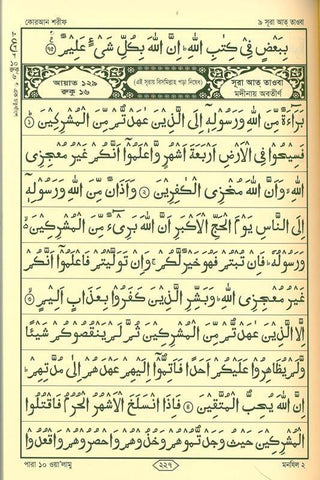 কোরআন শরীফ ৯ সূরা আত্ তাওবা
بِبَعْضٍ فِيْ كِتٰبِ اللهِ ؕ اِنَّ اللهَ بِكُلِّ شَيْءٍ عَلِيْمٌ ﴿۷۵﴾
আয়াত ১২৯ রুকু ১৬
(এই সূরায় বিসমিল্লাহ পড়া নিষেধ)
সূরা আত্ তাওবা মদীনায় অবতীর্ণ
بَرَآءَةٌ مِّنَ اللهِ وَرَسُوْلِهٖٓ اِلَى الَّذِيْنَ عٰهَدْتُّمْ مِّنَ الْمُشْرِكِيْنَ ﴿۱﴾
فَسِيْحُوْا فِي الْاَرْضِ اَرْبَعَةَ اَشْهُرٍ وَّاعْلَمُوْٓا اَنَّكُمْ غَيْرُ مُعْجِزِي
اللهِ ۙ وَاَنَّ اللهَ مُخْزِي الْكٰفِرِيْنَ ﴿۲﴾ وَاَذَانٌ مِّنَ اللهِ وَرَسُوْلِهٖٓ
اِلَى النَّاسِ يَوْمَ الْحَجِّ الْاَكْبَرِ اَنَّ اللهَ بَرِيْٓءٌ مِّنَ الْمُشْرِكِيْنَ ۙ
وَرَسُوْلُهٗ ؕ فَاِنْ تُبْتُمْ فَهُوَ خَيْرٌ لَّكُمْ ۚ وَاِنْ تَوَلَّيْتُمْ فَاعْلَمُوْٓا اَنَّكُمْ
غَيْرُ مُعْجِزِي اللهِ ؕ وَبَشِّرِ الَّذِيْنَ كَفَرُوْا بِعَذَابٍ اَلِيْمٍ ﴿۳﴾
اِلَّا الَّذِيْنَ عٰهَدْتُّمْ مِّنَ الْمُشْرِكِيْنَ ثُمَّ لَمْ يَنْقُصُوْكُمْ شَيْئًا
وَّلَمْ يُظَاهِرُوْا عَلَيْكُمْ اَحَدًا فَاَتِمُّوْٓا اِلَيْهِمْ عَهْدَهُمْ اِلٰى مُدَّتِهِمْ ؕ
اِنَّ اللهَ يُحِبُّ الْمُتَّقِيْنَ ﴿۴﴾ فَاِذَا انْسَلَخَ الْاَشْهُرُ الْحُرُمُ فَاقْتُلُوا
الْمُشْرِكِيْنَ حَيْثُ وَجَدْتُّمُوْهُمْ وَخُذُوْهُمْ وَاحْصُرُوْهُمْ وَاقْعُدُوْا
পারা ১০ ওয়া'লামু ২২৭ মনযিল ২